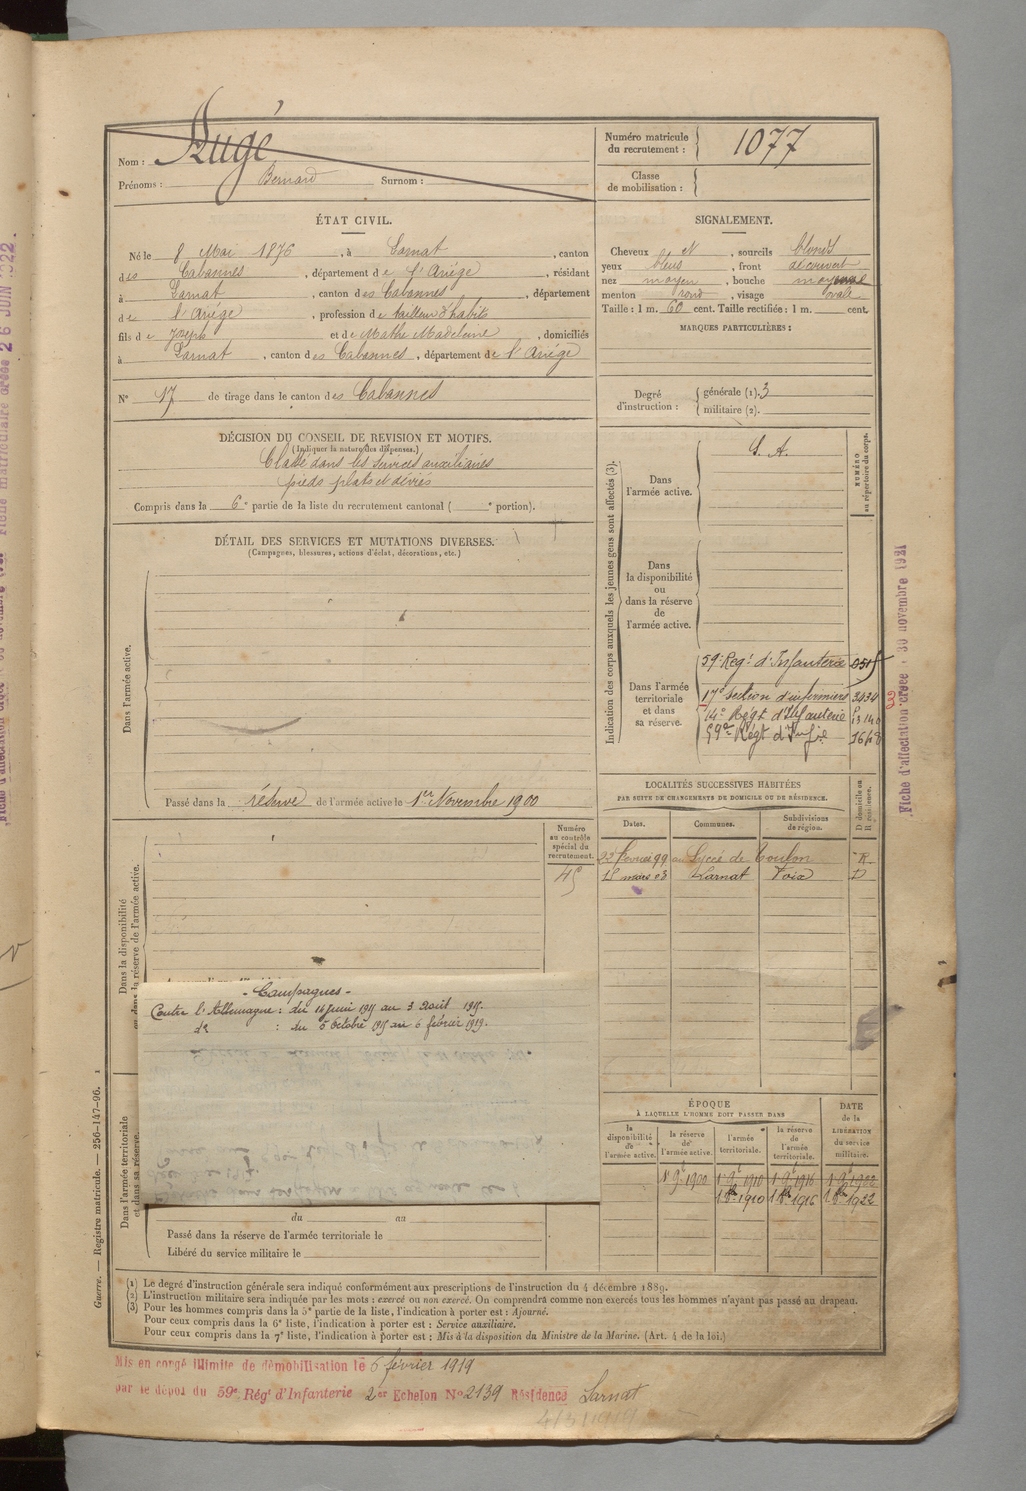 Nom : Augé
Prénoms : Bernard Surnom :
Numéro matricule du recrutement : 1077
Classe de mobilisation :
ÉTAT CIVIL.
Né le 8 Mai 1876, à Larnat, canton
des Cabannes, département de l'Ariége, résidant
à Larnat, canton des Cabannes, département
de l'Ariége, profession de tailleur d'habits
fils de Joseph et de Mathe Madeleine, domiciliés
à Larnat, canton des Cabannes, département de l'Ariége
N° 17 de tirage dans le canton des Cabannes
SIGNALEMENT.
Cheveux et, sourcils blonds
yeux bleus, front découvert
nez moyen, bouche moyenne
menton rond, visage ovale
Taille : 1 m. 60 cent. Taille rectifiée : 1 m. cent.
MARQUES PARTICULIÈRES :
Degré d'instruction : générale (1). 3
militaire (2).
DÉCISION DU CONSEIL DE REVISION ET MOTIFS.
(Indiquer la nature des dispenses.)
Classé dans les services auxiliaires
pieds plats et déviés
Compris dans la 6e partie de la liste du recrutement cantonal ( e portion).
DÉTAIL DES SERVICES ET MUTATIONS DIVERSES.
(Campagnes, blessures, actions d'éclat, décorations, etc.)
Dans l'armée active.
Passé dans la réserve de l'armée active le 1er Novembre 1900
Indication des corps auxquels les jeunes gens sont affectés (3).
NUMÉRO au répertoire du corps.
Dans l'armée active.
S. A.
Dans la disponibilité ou dans la réserve de l'armée active.
Dans l'armée territoriale et dans sa réserve.
59e Regt d'Infanterie
17e section d'infirmiers 3434
14e Régt d'Infanterie
59e Régt d'Infie
Fiche d'affectation créée 30 novembre 1921
Dans la disponibilité ou dans la réserve de l'armée active.
Numéro au contrôle spécial du recrutement.
45
LOCALITÉS SUCCESSIVES HABITÉES
PAR SUITE DE CHANGEMENTS DE DOMICILE OU DE RÉSIDENCE.
Dates. Communes. Subdivisions de région. D domicile ou R résidence.
22 février 99 au Lycée de Toulon R
15 mars 03 Larnat Foix D
- Campagnes -
Contre l'Allemagne : du 14 Juin 1915 au 3 Août 1915.
do : du 5 Octobre 1915 au 6 février 1919.
Dans l'armée territoriale et dans sa réserve.
du au
Passé dans la réserve de l'armée territoriale le
Libéré du service militaire le
ÉPOQUE
À LAQUELLE L'HOMME DOIT PASSER DANS
la disponibilité de l'armée active. la réserve de l'armée active. l'armée territoriale. la réserve de l'armée territoriale.
DATE de la LIBÉRATION du service militaire.
1er 9bre 1900 1er 9bre 1910 1er 9bre 1916 1er 9bre 1922
1er 8bre 1910 1er 8bre 1916 1er 8bre 1922
(1) Le degré d'instruction générale sera indiqué conformément aux prescriptions de l'instruction du 4 décembre 1889.
(2) L'instruction militaire sera indiquée par les mots : exercé ou non exercé. On comprendra comme non exercés tous les hommes n'ayant pas passé au drapeau.
(3) Pour les hommes compris dans la 5e partie de la liste, l'indication à porter est : Ajourné.
Pour ceux compris dans la 6e liste, l'indication à porter est : Service auxiliaire.
Pour ceux compris dans la 7e liste, l'indication à porter est : Mis à la disposition du Ministre de la Marine. (Art. 4 de la loi.)
Guerre. — Registre matricule. — 256-147-96.
Mis en congé illimité de démobilisation le 6 février 1919
par le dépôt du 59e Régt d'Infanterie 2er Echelon No 2139 Résidence Larnat